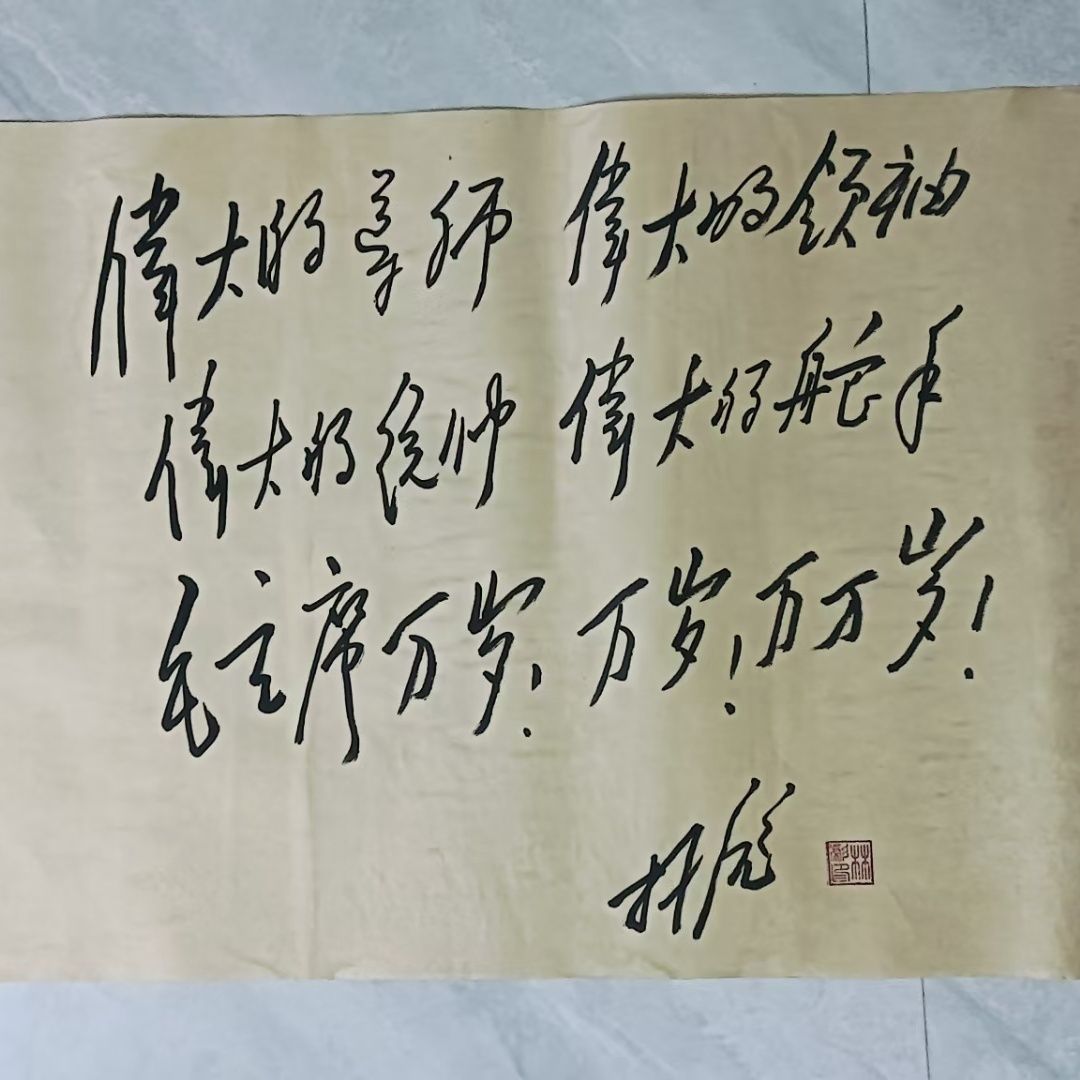 偉大的导师 偉大的领袖
偉大的统帅 偉大的舵手
毛主席万岁！万岁！万万岁！
林彪
林彪印